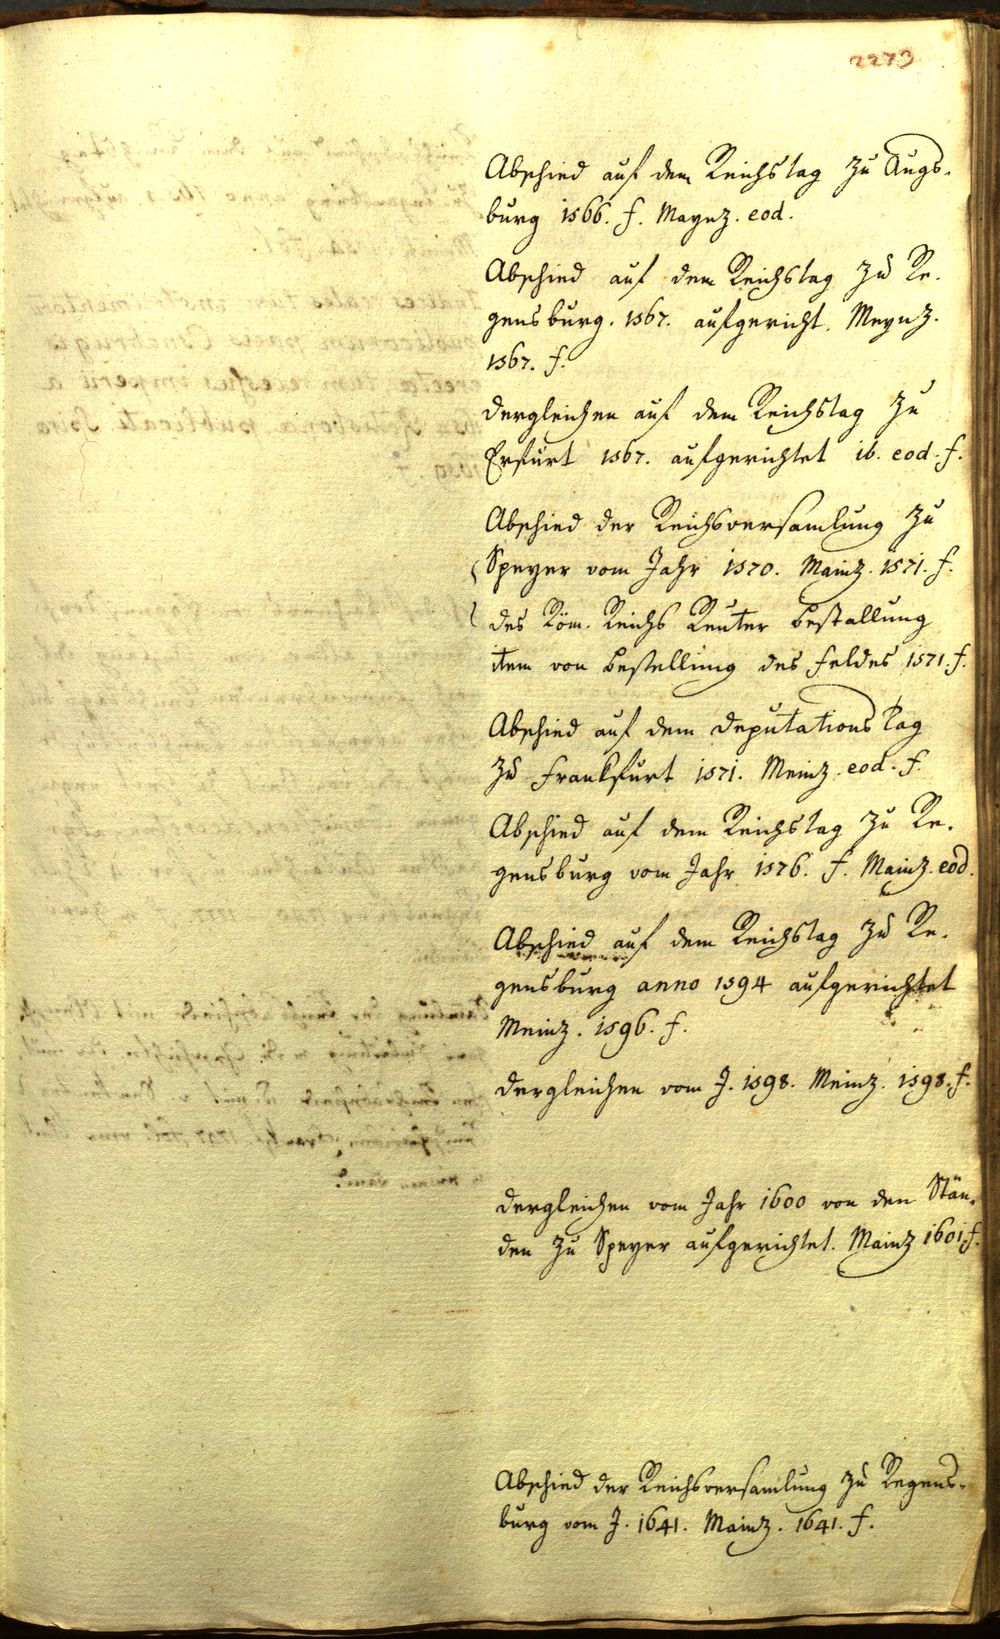 2273
Abschied auf dem Reichstag zu Augs-
burg 1566. f. Maynz. eod.
Abschied auf dem Reichstag zu Re-
gensburg. 1567. aufgericht. Meynz.
1567. f.
dergleichen auf dem Reichstag zu
Erfurt 1567. aufgerichtet ib. eod. f.
Abschied der Reichsversamlung zu
Speyer vom Jahr 1570. Mainz. 1571. f.
des Röm. Reichs Reuter bestallung
item von bestellung des feldes 1571. f.
Abschied auf dem deputations Tag
zu Frankfurt 1571. Meinz. eod. f.
Abschied auf dem Reichstag zu Re-
gensburg vom Jahr 1576. f. Mainz. eod.
Abschied auf dem Reichstag zu Re-
gensburg anno 1594 aufgerichtet
Meinz. 1596. f.
dergleichen vom J. 1598. Meinz. 1598. f.
dergleichen vom Jahr 1600 von den Stän-
den zu Speyer aufgerichtet. Mainz 1601. f.
Abschied der Reichsversamlung zu Regens-
burg vom J. 1641. Mainz. 1641. f.